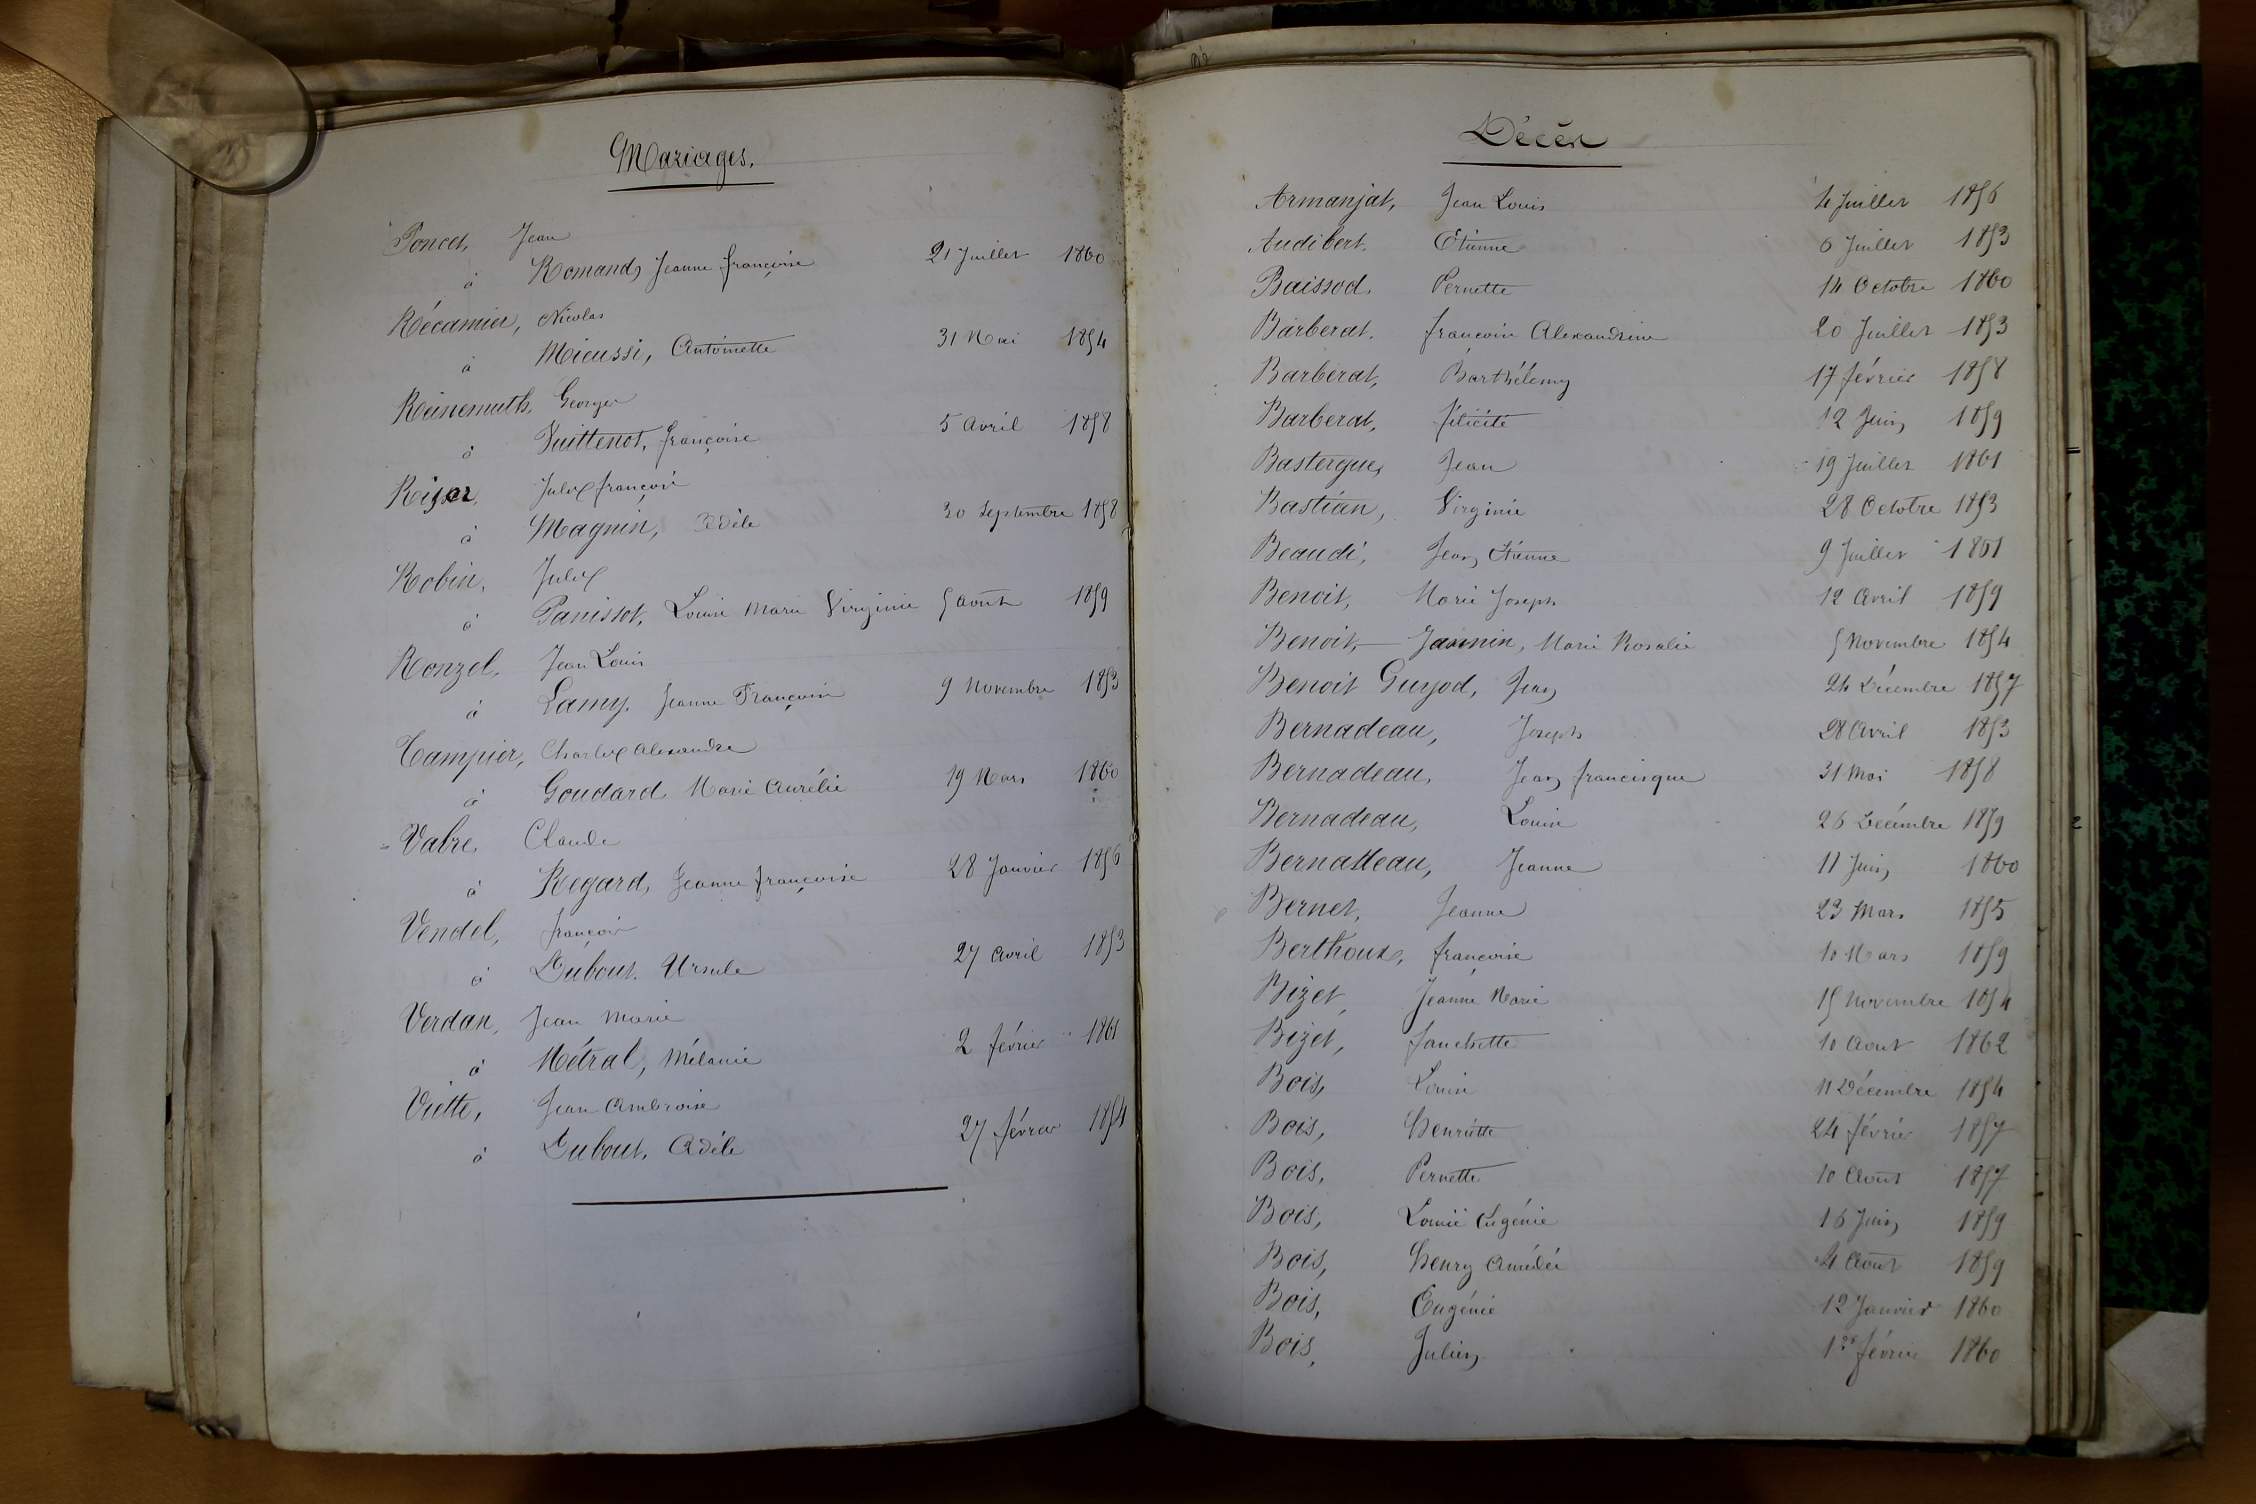 Mariages.
Poncet, Jean
à Romand, Jeanne françoise 21 Juillet 1860
Récamier, Nicolas
à Mieussi, Antoinette 31 Mai 1854
Reinemuth, Georges
à Vuittenot, françoise 5 avril 1858
Jules françois
à Magnin, Adèle 30 Septembre 1858
Robin, Jules
à Panissot, Louise Marie Virginie 5 août 1859
Ronzel, Jean Louis
à Lamy, Jeanne Françoise 9 Novembre 1853
Tampier, Charles Alexandre
à Goudard Marie Aurélie 19 Mars 1860
Vabre, Claude
à Regard, Jeanne françoise 28 Janvier 1856
Vendel, françois
à Dubout, Ursule 27 avril 1853
Verdan, Jean Marie
à Métral, Mélanie 2 février 1861
Viette, Jean Ambroise
à Dubout, Adèle 27 février 1854
Décès
Armanjat, Jean Louis 4 Juillet 1856
Audibert. Etienne 6 Juillet 1853
Baissod. Pernette 14 Octobre 1860
Barberat. françoise Alexandrine 20 Juillet 1853
Barberat, Barthélemy 17 février 1858
Barberat, félicité 12 Juin 1859
Bastergue, Jean 19 Juillet 1861
Bastian, Virginie 28 Octobre 1853
Beaudi, Jean Etienne 9 Juillet 1861
Benoit, Marie Joseph 12 Avril 1859
Benoit,— Jannin, Marie Rosalie 5 Novembre 1854
Benoit Guyod, Jean 24 Décembre 1857
Bernadeau, Joseph 28 Avril 1853
Bernadeau, Jean francisque 31 Mai 1858
Bernadeau, Louise 26 Décembre 1859
Bernadeau, Jeanne 11 Juin 1860
Bernet, Jeanne 23 Mars 1855
Berthoux, françoise 10 Mars 1859
Bizet, Jeanne Marie 15 Novembre 1854
Bizet, fanchette 10 Aout 1862
Bois, Louise 11 Décembre 1854
Bois, Henriette 24 février 1857
Bois, Pernette 10 Août 1857
Bois, Louise Eugénie 16 Juin 1859
Bois, Henry Amédée 4 Août 1859
Bois, Eugénie 12 Janvier 1860
Bois, Julien 1er février 1860